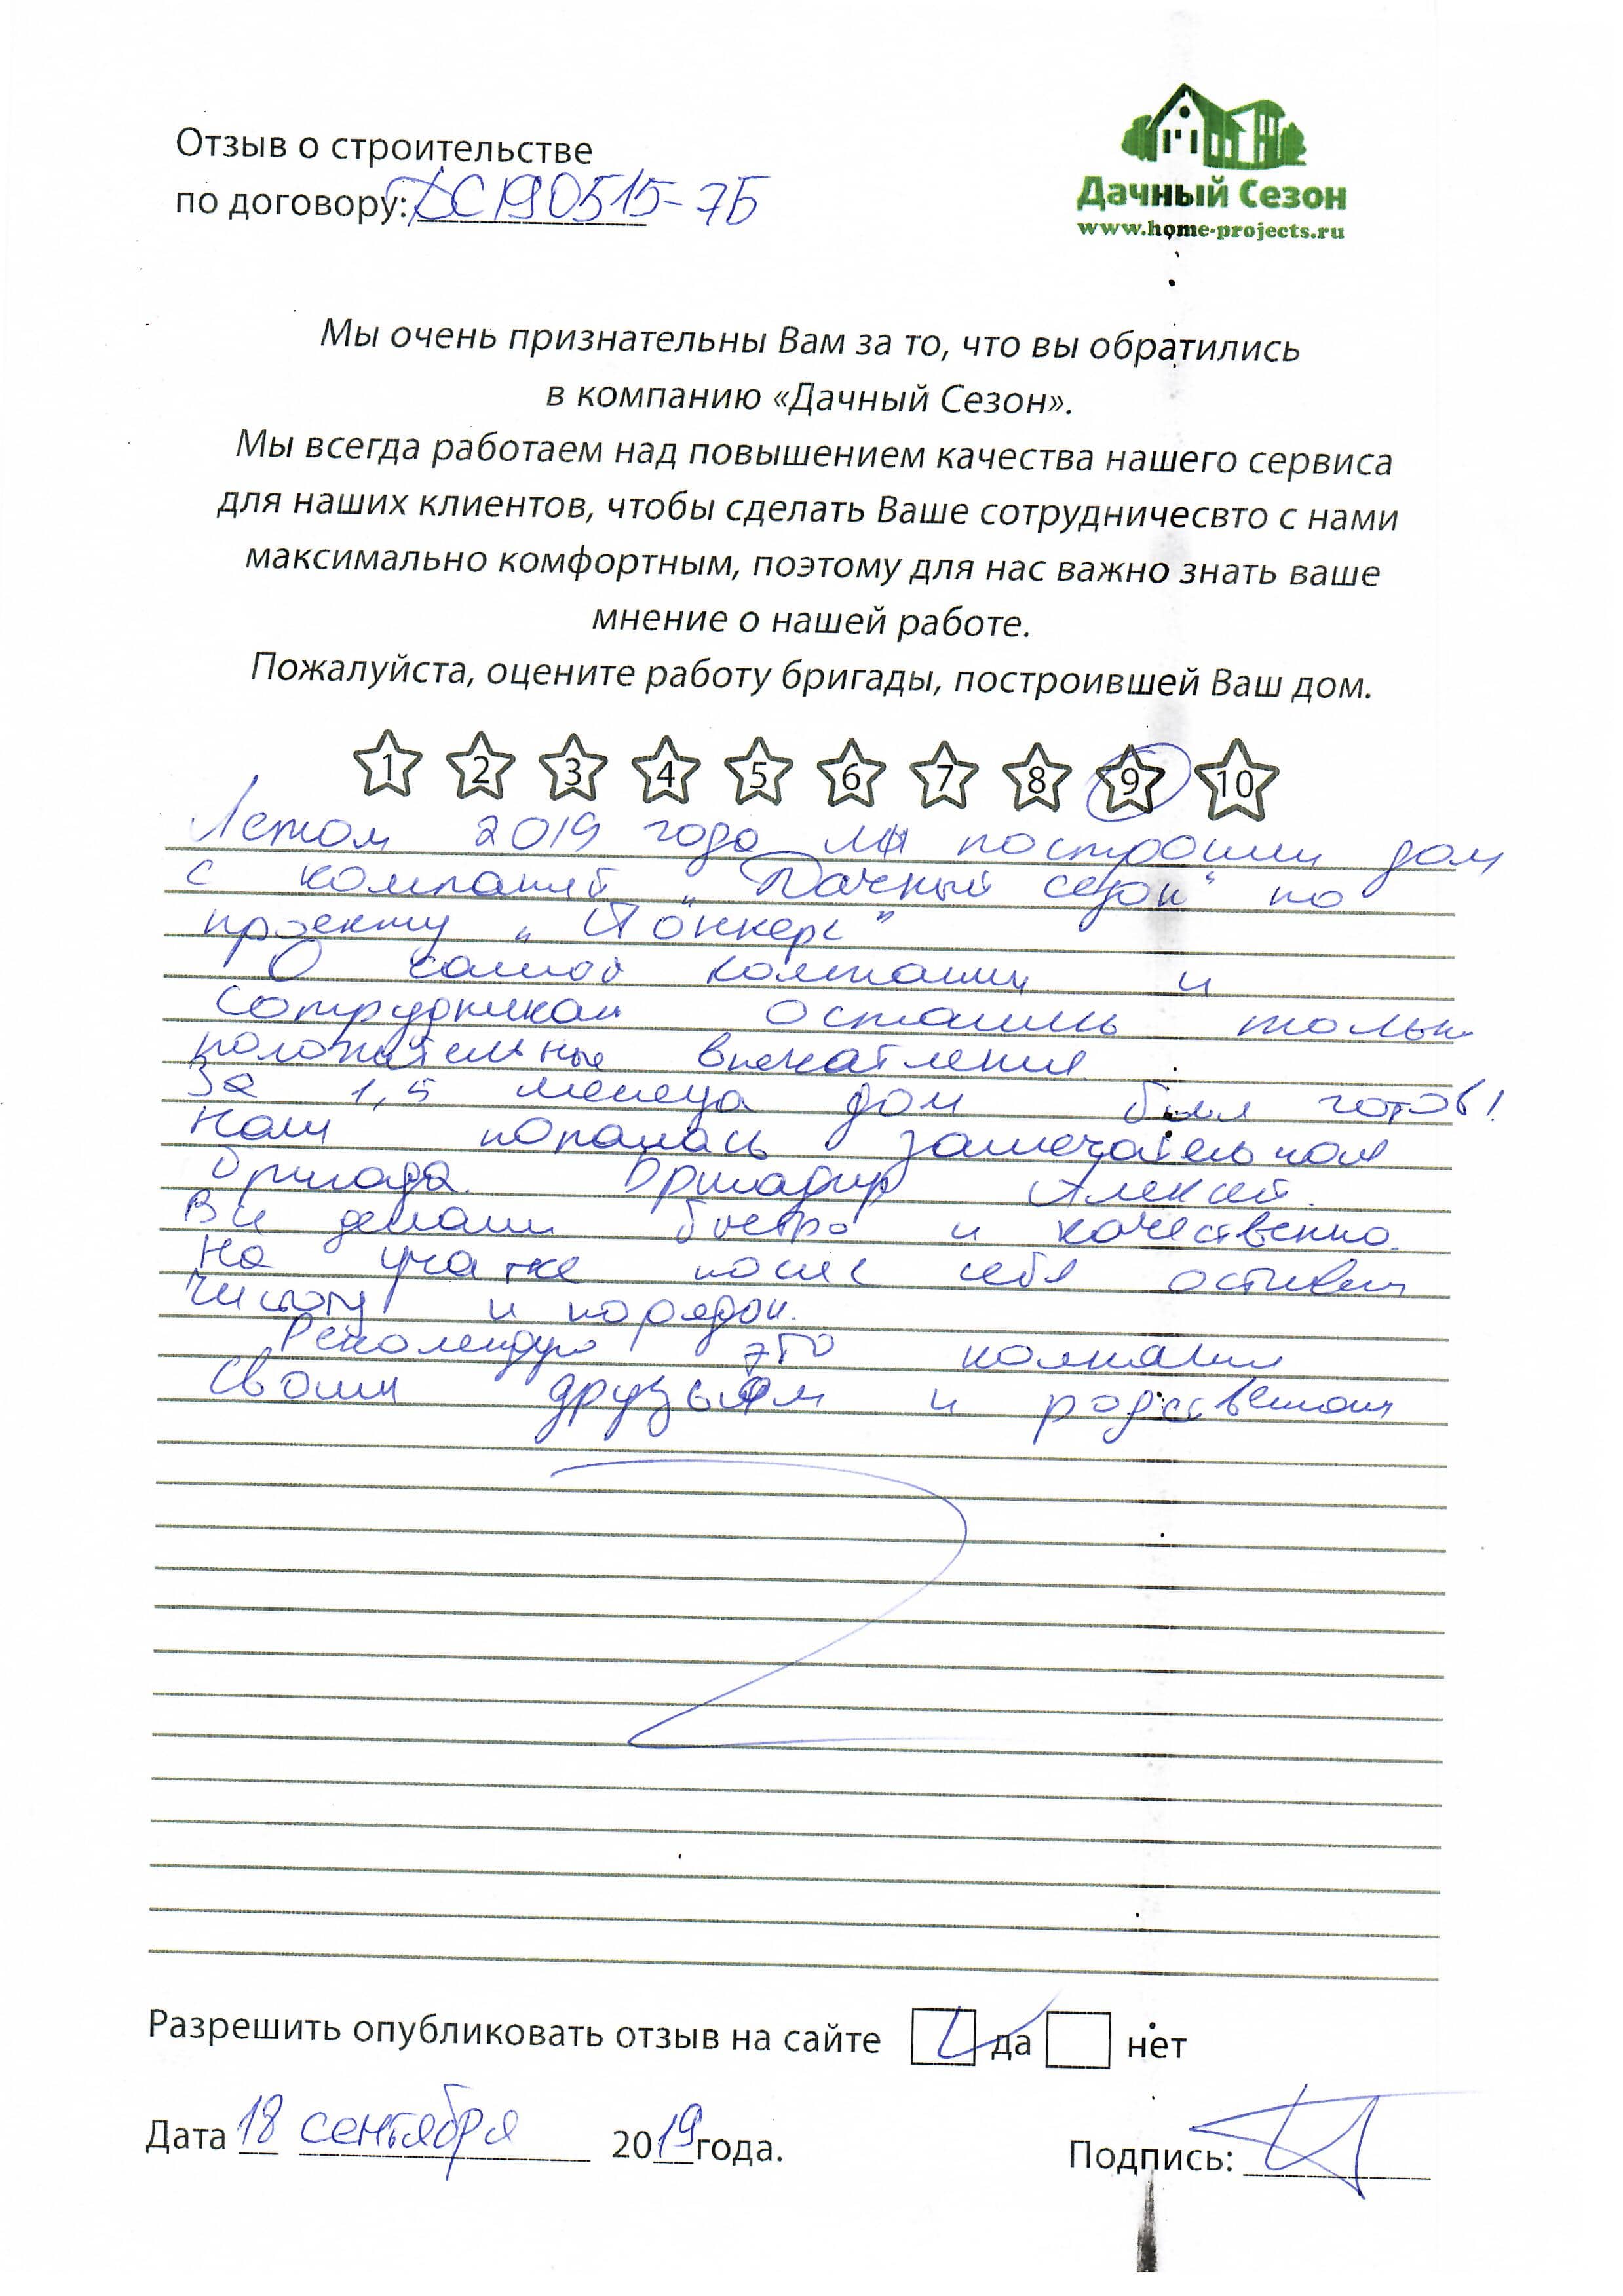 Отзыв о строительстве
по договору: ДС190515-7Б
Дачный Сезон
www.home-projects.ru
Мы очень признательны Вам за то, что вы обратились
в компанию «Дачный Сезон».
Мы всегда работаем над повышением качества нашего сервиса
для наших клиентов, чтобы сделать Ваше сотрудничесвто с нами
максимально комфортным, поэтому для нас важно знать ваше
мнение о нашей работе.
Пожалуйста, оцените работу бригады, построившей Ваш дом.
1 2 3 4 5 6 7 8 9 10
Летом 2019 года мы построили дом
с компанией „Дачный сезон“ по
проекту „Йонкерс”
О самой компании и
сотрудниках остались только
положительные впечатления
За 1,5 месяца дом был готов!
Нам попалась замечательная
бригада. Бригадир Алексей.
Все делали быстро и качественно.
На участке после себя оставили
чистоту и порядок.
Рекомендую это компании
Своим друзьям и родственникам
Разрешить опубликовать отзыв на сайте да нет
Дата 18 сентября 2019 года.
Подпись: